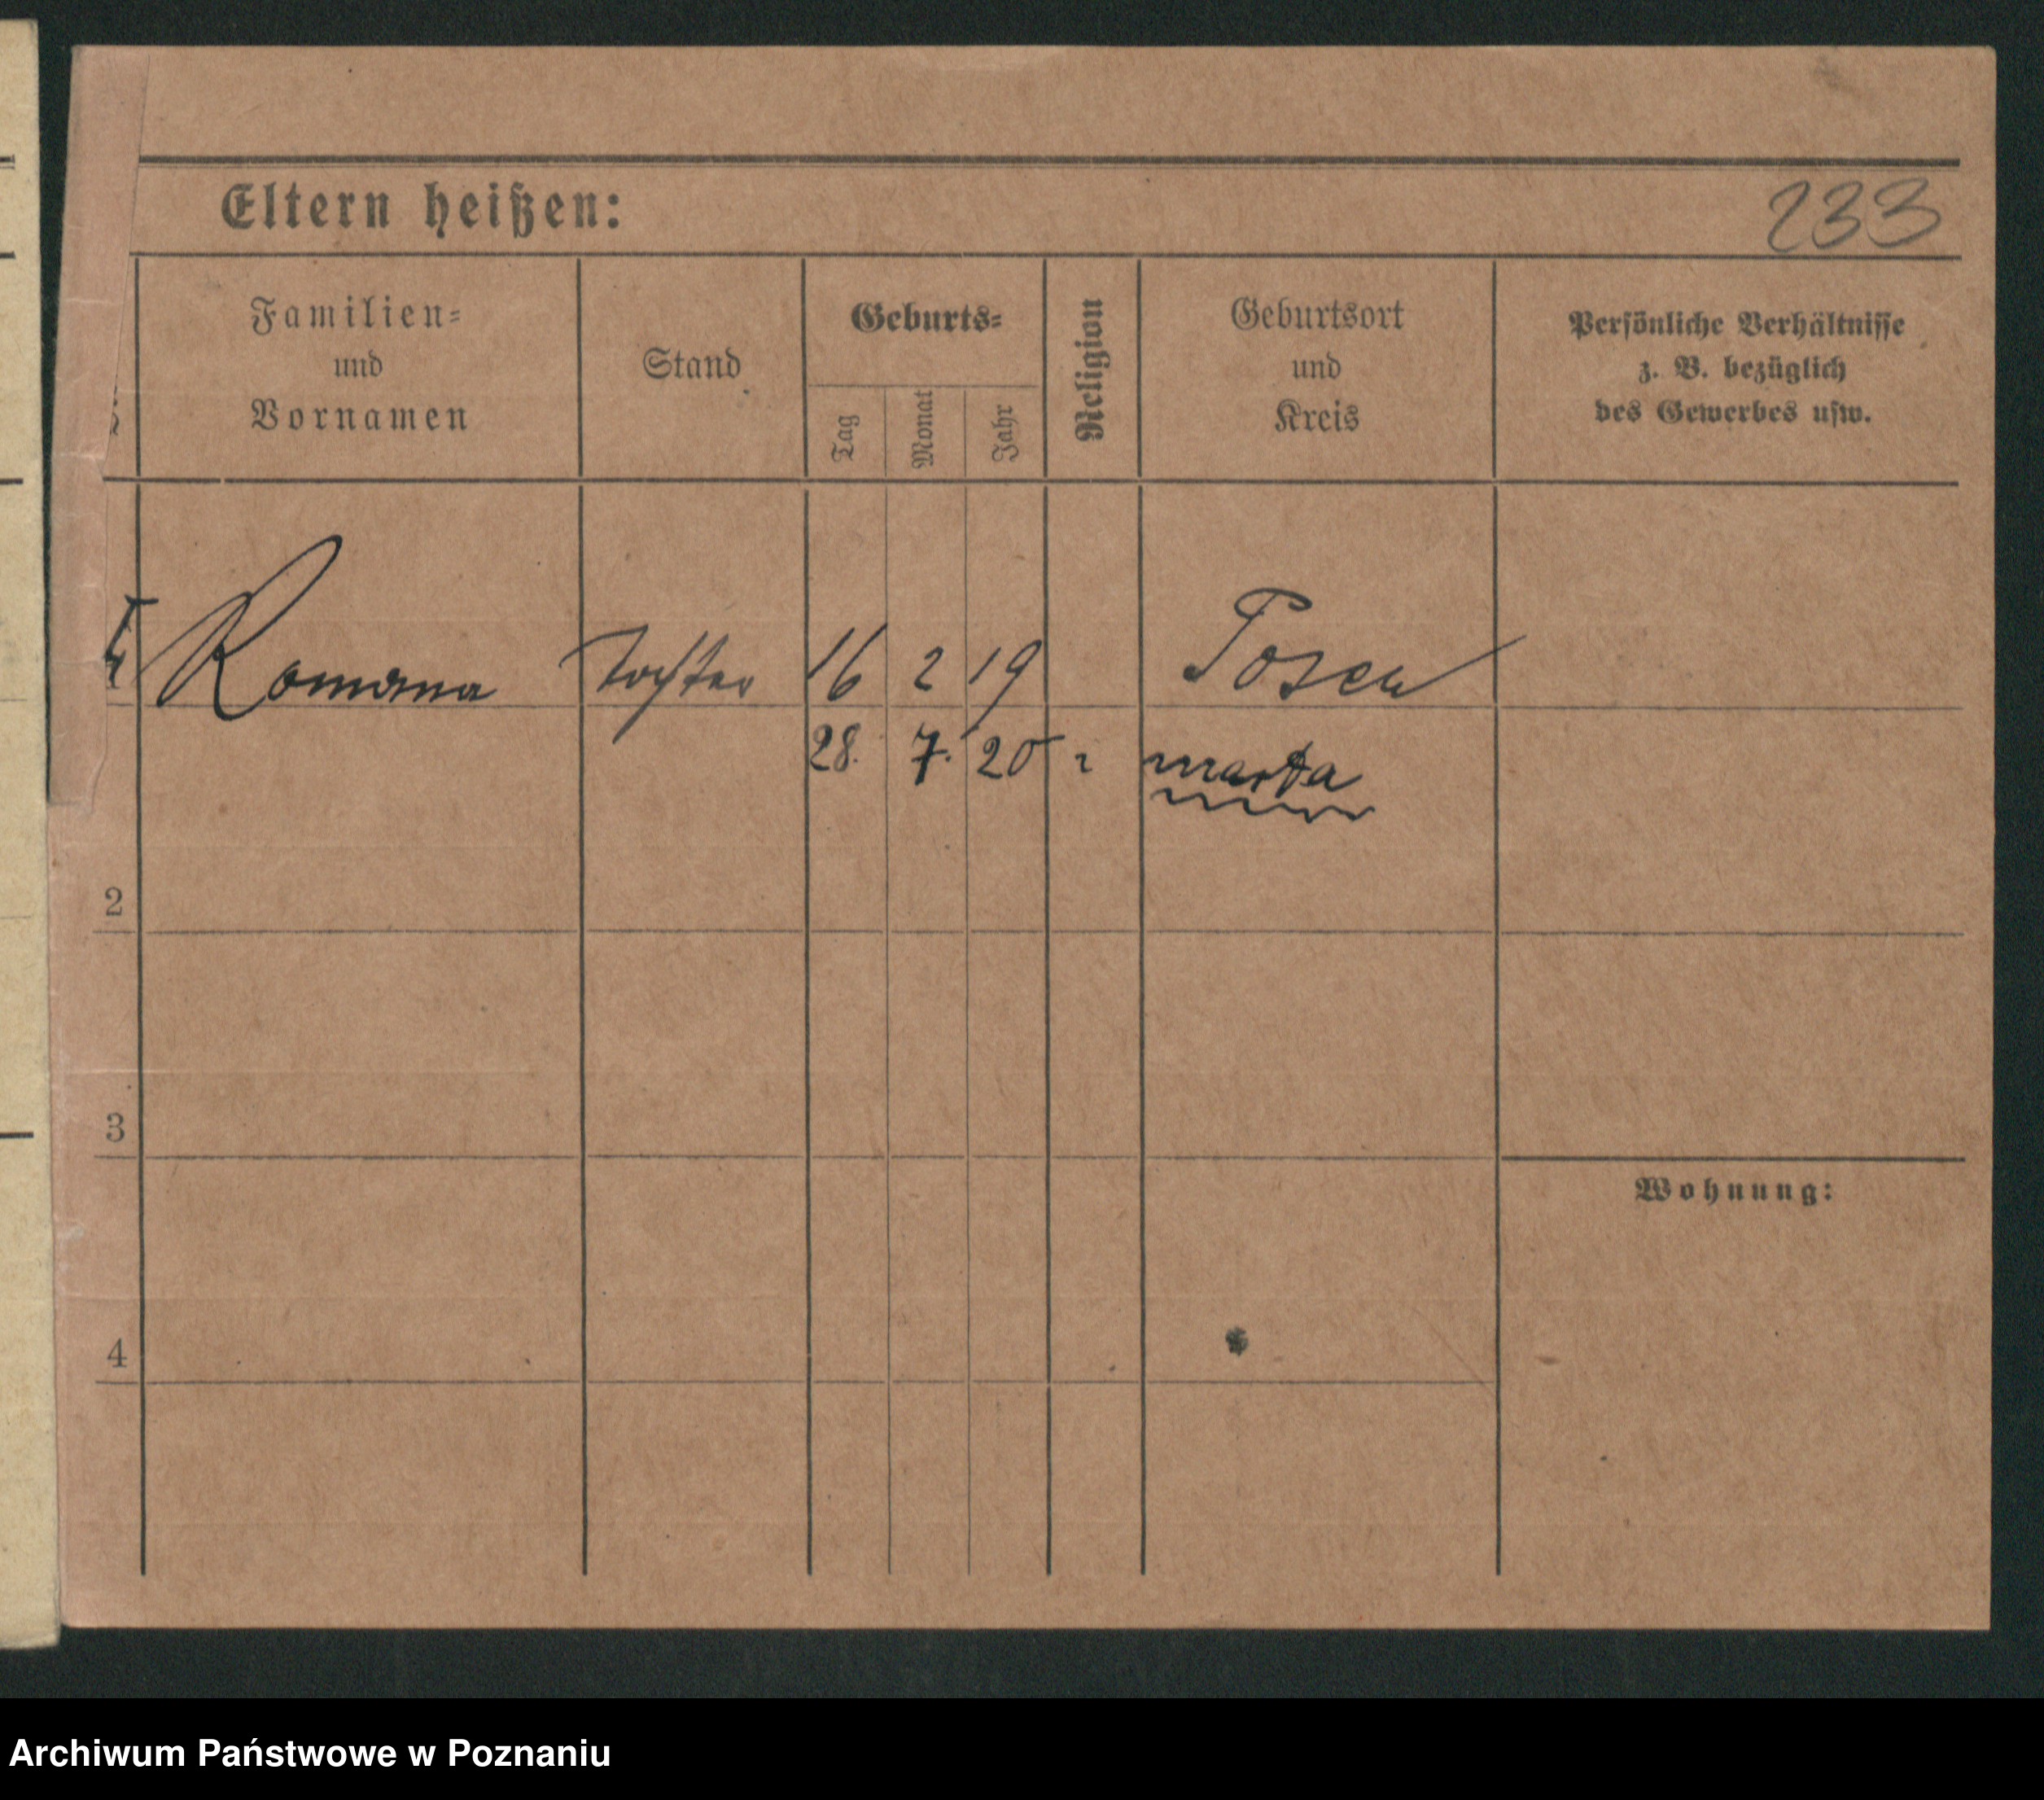 Eltern heißen:
233
Familien-
und
Vornamen
Stand
Geburts-
Tag
Monat
Jahr
Religion
Geburtsort
und
Kreis
Persönliche Verhältnisse
z. B. bezüglich
des Gewerbes usw.
Romana Tochter 16 2 19 Posen
28. 7. 20 marta
2
3
Wohnung:
4
Archiwum Państwowe w Poznaniu